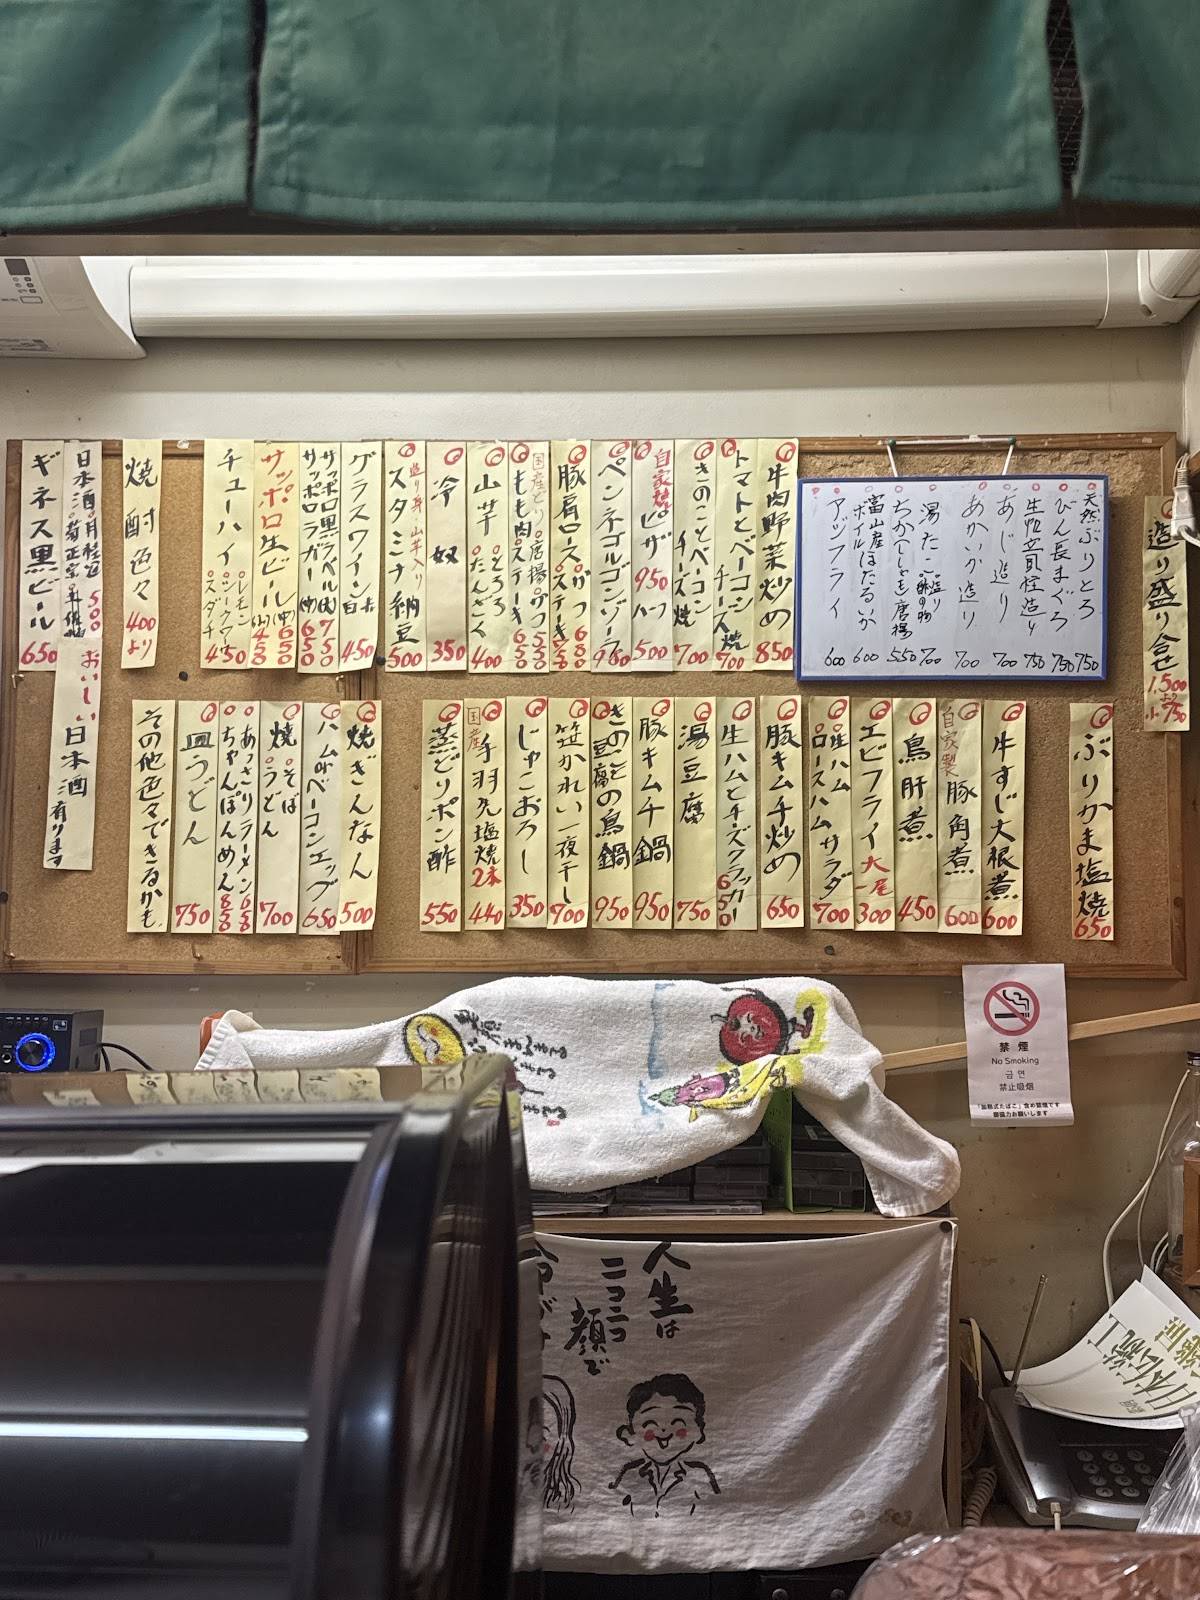 造り盛り合せ 1,500より 小750
天然ぶりとろ 750
びん長まぐろ 750
生帆立貝柱造り 750
あじ造り 700
あかいか造り 700
湯だこ 造り 酢の物 700
ちか(ししゃも)唐揚 550
富山産ほたるいか ボイル 600
アジフライ 600
牛肉野菜炒め 850
トマトとベーコン チーズ焼 700
きのことベーコン チーズ焼 700
自家焼ピザ 950 ハーフ 500
ペンネゴルゴンゾーラ 950
豚肩ロース
国産とり 唐揚 550
もも肉 ステーキ 650
山芋 とろろ たんざく 400
冷奴 350
造り身・山芋入り
スタミナ納豆 500
グラスワイン 赤 白 450
サッポロ黒ラベル(大) 750
サッポロラガー(中) 650
サッポロ生ビール (中) 650 (小) 450
チューハイ レモン スダチ 450
焼酎色々 400より
日本酒 月桂冠 500
ギネス黒ビール 650
おいしい日本酒有ります
ぶりかま塩焼 650
牛すじ大根煮 600
自家製豚角煮 600
鳥肝煮 450
エビフライ 大一尾 300
生ハム ロースハム サラダ 700
豚キムチ炒め 650
生ハムとチーズクラッカー 650
湯豆腐 750
豚キムチ鍋 950
きのこと豆腐の鳥鍋 950
笹かれい一夜干し 700
じゃこおろし 350
国産 手羽先塩焼 2本 440
蒸どりポン酢 550
焼ぎんなん 500
ハムorベーコンエッグ 650
焼 そば うどん 700
あっさりラーメン 650
ちゃんぽんめん 850
皿うどん 750
その他色々できるかも。
禁煙
No Smoking
금연
禁止吸烟
「加熱式たばこ」含め禁煙です
御協力お願いします
人生は
ニコニコ
顔で